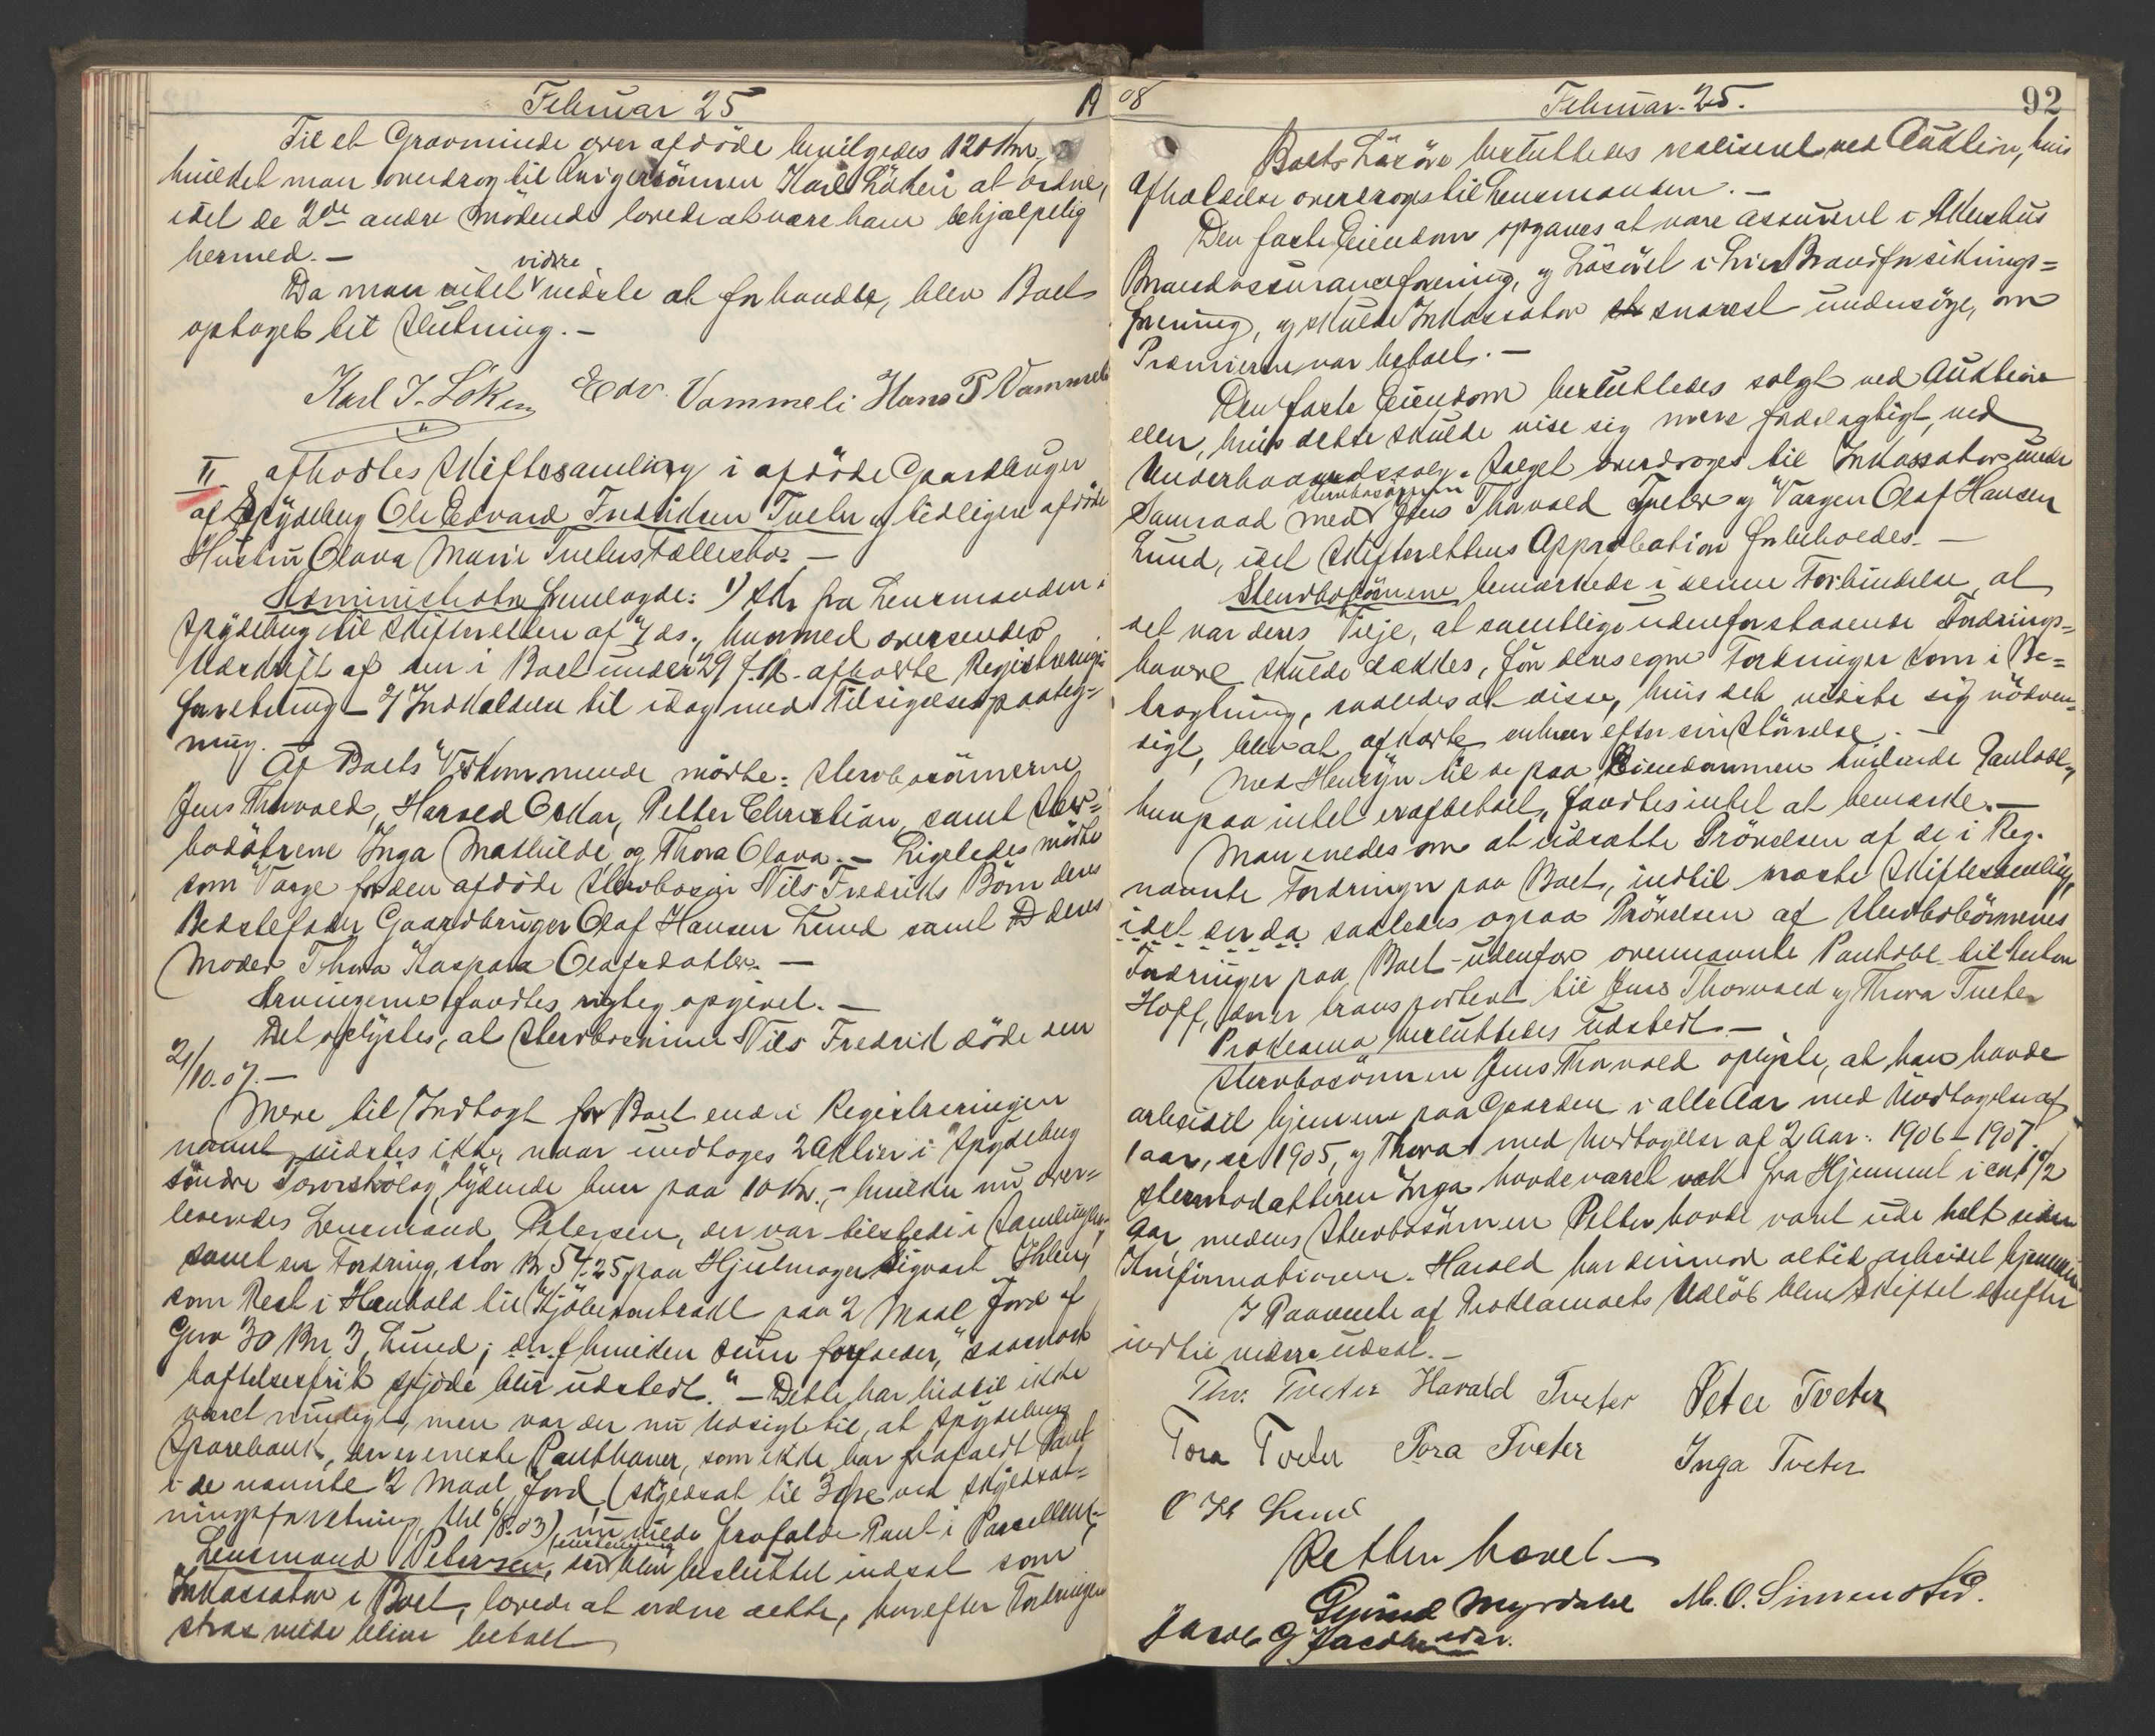 Februar 25
19
Til et Gravminde over afdöde bevilgedes 120 Kr.
hvildet man overdrog til Svigersönnen Karl Löken at ordne,
idet de 2de andre mödende lovede at være ham behjælpelig
hermed.–
Da man intet vidre vidste at forhandle, blev Boet
optaget til Slutning.–
Karl J. Löken Edv. Vammeli Hans P Vammeli
II. afholdtes Skiftesamling i afdöde Gaardbruger
af Spydeberg Ole Edvard Fredriksen Tveter og tidligere afdöde
Hustru Olava Marie Tveters Fællesbo.–
Administrator fremlagde: 1) Skr fra Lensmanden i
Spydeberg til Skifteretten af ds., hvormed oversendes
Udskrift af den i Boet under 29 f. M. afholdte Registrerings=
forretning – 2) Indkaldelse til idag med Tilsigelsespaateg=
ning.–
Af Boets Vedkommende mödte: Stervbosönnerne
Jens Thorvald, Harald Oskar, Petter Christian, samt Sterv=
bodötrene Inga Mathilde og Thora Olava.– Ligeledes mödte
som Værge for den afdöde Stervbosön Nils Fredriks Börn deres
Bedstefader Gaardbruger Olaf Hansen Lund samt deres
Moder Thora Kaspara Olafsdatter.–
Arvingerne fandtes rigtig opgivet.–
Det oplystes, at Stervbosönnen Nils Fredrik döde den
21/10.07.–
Mere til Indtægt for Boet end i Registreringen
nævnt vidstes ikke, naar undtages 2 Aktier i Spydeberg
söndre lydende hver paa 10 Kr.,– hvilke nu over=
leveredes Lensmand Petersen, der var tilstede i Samlingen,
samt en Fordring, stor Kr 54.25 paa Hjulmager Sigvart
som Rest i Henhold til Kjöbekontrakt paa 2 Maal Jord af
Gno 30 Bn 3, Lund; der f hvilken Sum forfalder, "saasnart
haftelsesfrit Skjöde blir udstedt."– Dette har hidtil ikke
været muligt, men var der nu Udsigt til, at Spydeberg
Sparebank, der er eneste Panthaver, som ikke har frafaldt Pant
i de nævnte 2 Maal Jord (skyldsat til 3 öre ved Skyldsæt=
ningsforretning, thl 6/8.03), nu vilde frafalde Pant i Parcellen.–
Lensmand Petersen, der blev besluttet indsat som
Inkassator i Boet, lovede at ordne dette, hvorefter Fordringen
strax vilde blive betalt
08
Februar. 25.
92
Boets Lösöre besluttedes realiseret ved Auktion, hvis
Afholdelse overdroges til Lensmanden.–
Den faste Eiendom opgaves at være assureret i Akershus
Brandassuranceforening, og Lösöret i Brandforsikrings=
forening, og skulde Inkassator snarest undersöge, om
Præmierne var betalt.–
Den faste Eiendom besluttedes solgt ved Auktion
eller, hvis dette skulde vise sig mere fordelagtigt, ved
Underhaandssalg. Salget overdroges til Inkassator under
Samraad med stervbosönnen Jens Thorvald Tveter og Værgen Olaf Hansen
Lund, idet Skifterettens Approbation forbeholdes.–
Stervbobörnene bemærkede i denne Forbindelse, at
det var deres Vilje, at samtlige udenforstaaende Fordrings=
havere skulde dækkes, för deres egne Fordringer kom i Be=
tragtning, saaledes at disse, hvis det viste sig nödven=
digt, blev at afkorte enhver efter sin Störrelse.–
Med Hensyn til de paa Eiendommen hvilende Panteobl.,
hvorpaa intet er afbetalt, fandtes intet at bemærke.–
Man enedes om at udsætte Prövelsen af de i Reg.
nævnte Fordringer paa Boet, indtil næste Skiftesamling,
idet der da saaledes ogsaa Prövelsen af Stervbobörnenes
Fordringer paa Boet – udenfor ovennævnte Panteobl. til Anton
Hoff, der er transporteret til Jens Thorvald og Thora Tveter
Proklama besluttedes udstedt.–
Stervbosönnen Jens Thorvald oplyste, at han havde
arbeidet hjemme paa Gaarden i alle Aar med Undtagelse af
1 aar, se 1905, og Thora med Undtagelse af 2 Aar: 1906 – 1907.
Stervbodatteren Inga havde været væk fra Hjemmet i ca 1 1/2
Aar, medens Stervbosönnen Petter havde været ude helt siden
Konfirmationen. Harald har derimod altid arbeidet hjemme
I Paavente af Proklamaets Udlöb blev Skiftet derefter
indtil videre udsat.–
Thv. Tveter Harald Tveter Peter Tveter
Tora Tveter Tora Tveter Inga Tveter
O H Lund
Retten hævet–
Myrdahl M. O. Simenstad.
Jacob